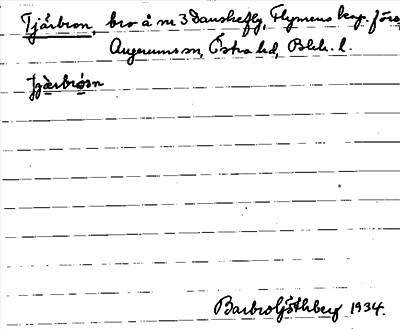 Tjärbron, bro å nr 3 Danskefly, Flymens kap. förs.
Augerums sn, Östra hd, Blek. l.
Jȷärbrón
Barbro Göthberg 1934.